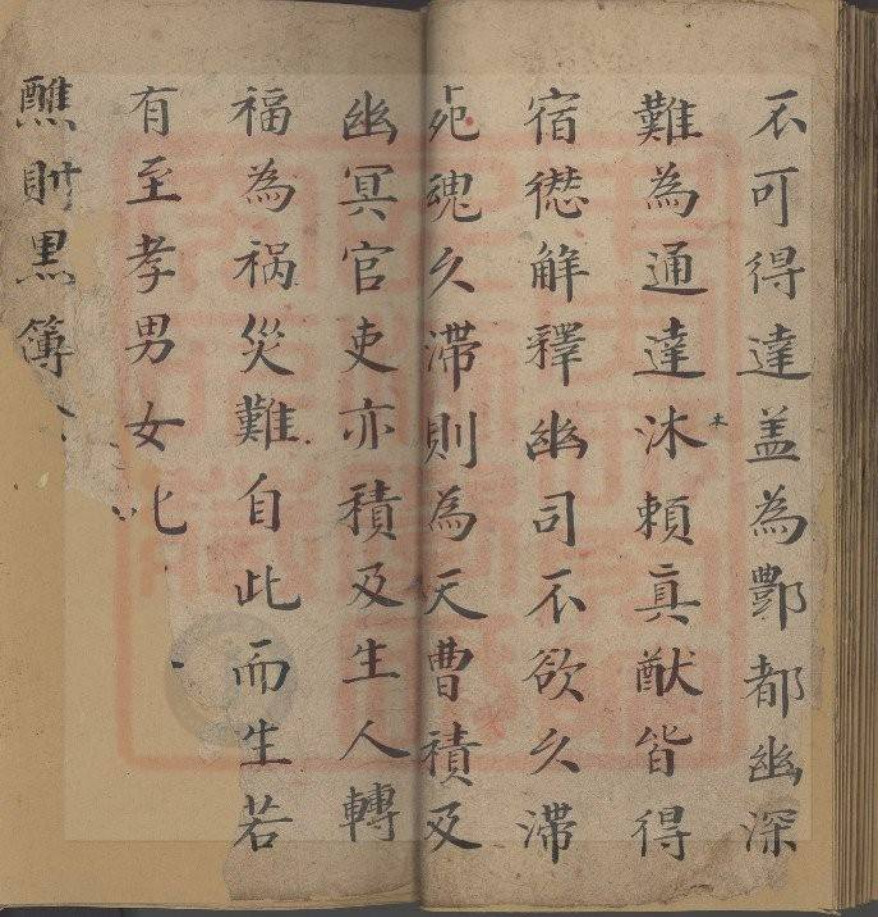 不可得達盖為酆都幽深
難為通達沐頼真猷皆得
宿愆解釋幽司不欲久滯
魂久滯則為天曹積及
幽冥官吏亦積及生人轉
福為禍災難自此而生若
有至孝男女
醮則黒簿